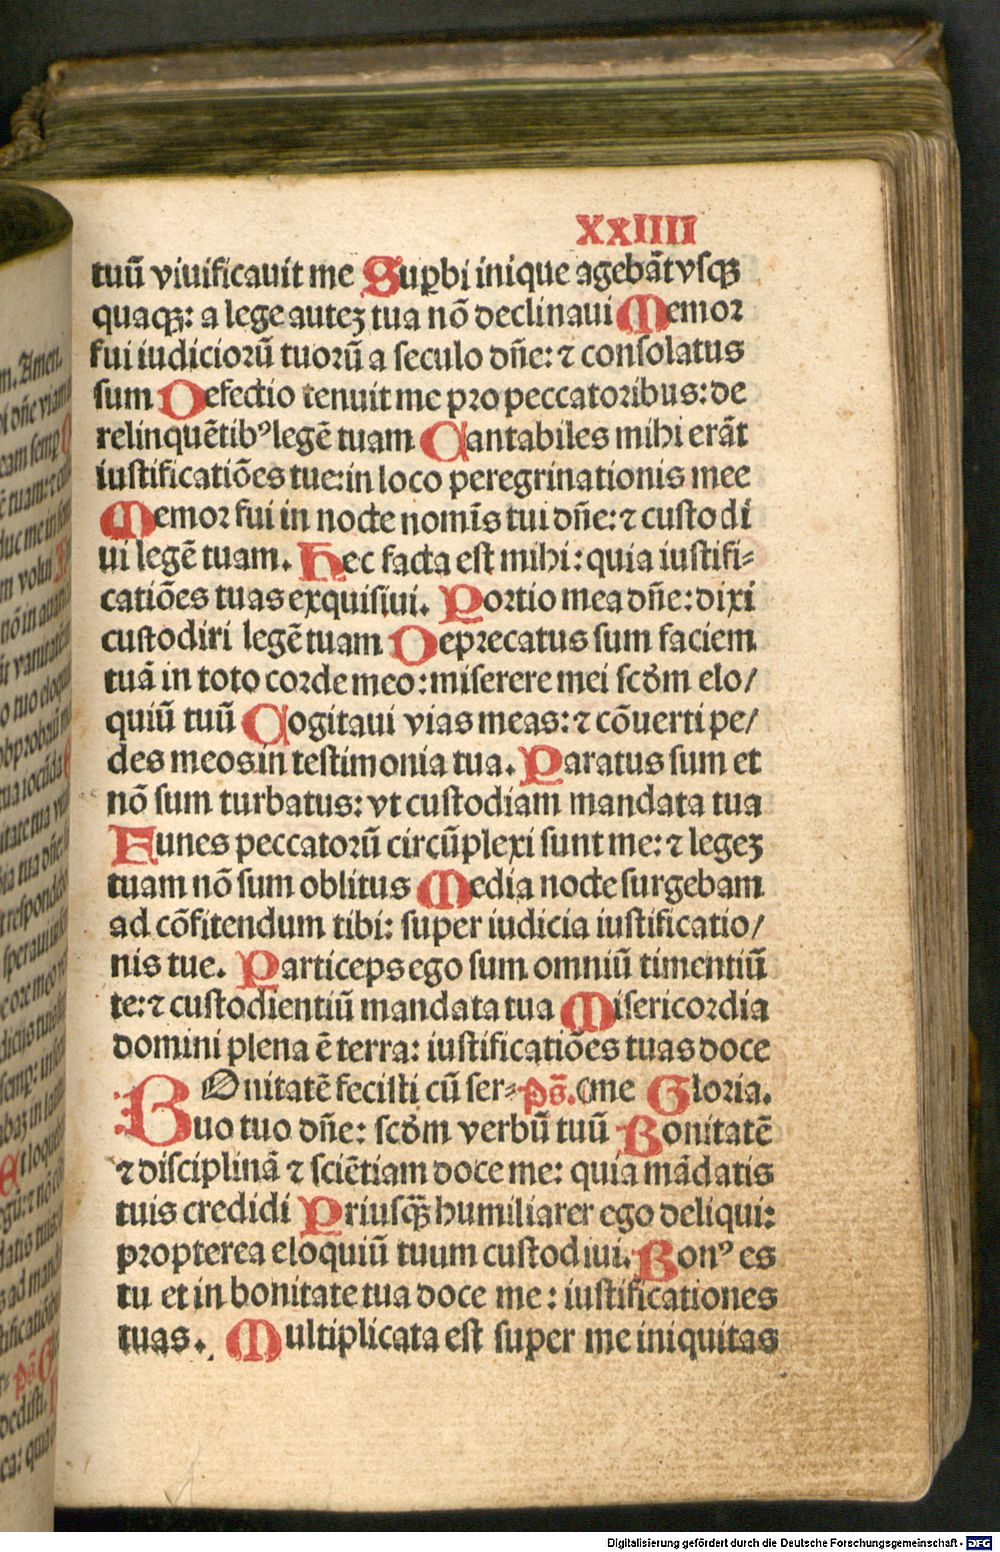 XxIIII
tuū viuificauit me Suꝑbi inique agebāt vsqꝫ
quaqꝫ: a lege auteꝫ tua nō declinaui Memor
fui iudiciorū tuorū a seculo dñe: ⁊ consolatus
sum Defectio tenuit me pro peccatoribus: de
relinquētibꝰ legē tuam Cantabiles mihi erāt
iustificatiōes tue: in loco peregrinationis mee
Memor fui in nocte nomīs tui dñe: ⁊ custodi
ui legē tuam. Hec facta est mihi: quia iustifi⸗
catiōes tuas exquisiui. Portio mea dñe: dixi
custodiri legē tuam Deprecatus sum faciem
tuā in toto corde meo: miserere mei scḋm elo/
quiū tuū Cogitaui vias meas: ⁊ cōuerti pe/
des meos in testimonia tua. Paratus sum et
nō sum turbatus: vt custodiam mandata tua
Funes peccatorū circūplexi sunt me: ⁊ legeꝫ
tuam nō sum oblitus Media nocte surgebam
ad cōfitendum tibi: super iudicia iustificatio/
nis tue. Particeps ego sum omniū timentiū
te: ⁊ custodientiū mandata tua Misericordia
domini plena ē terra: iustificatiōes tuas doce
BOnitatē fecisti cū ser⸗ ps̄. (me Gloria.
uo tuo dñe: scḋm verbū tuū Bonitatē
⁊ disciplinā ⁊ sciētiam doce me: quia mādatis
tuis credidi Priusqꝫ̄ humiliarer ego deliqui:
propterea eloquiū tuum custodiui. Bonꝰ es
tu et in bonitate tua doce me: iustificationes
tuas. Multiplicata est super me iniquitas
Digitalisierung gefördert durch die Deutsche Forschungsgemeinschaft - DFG